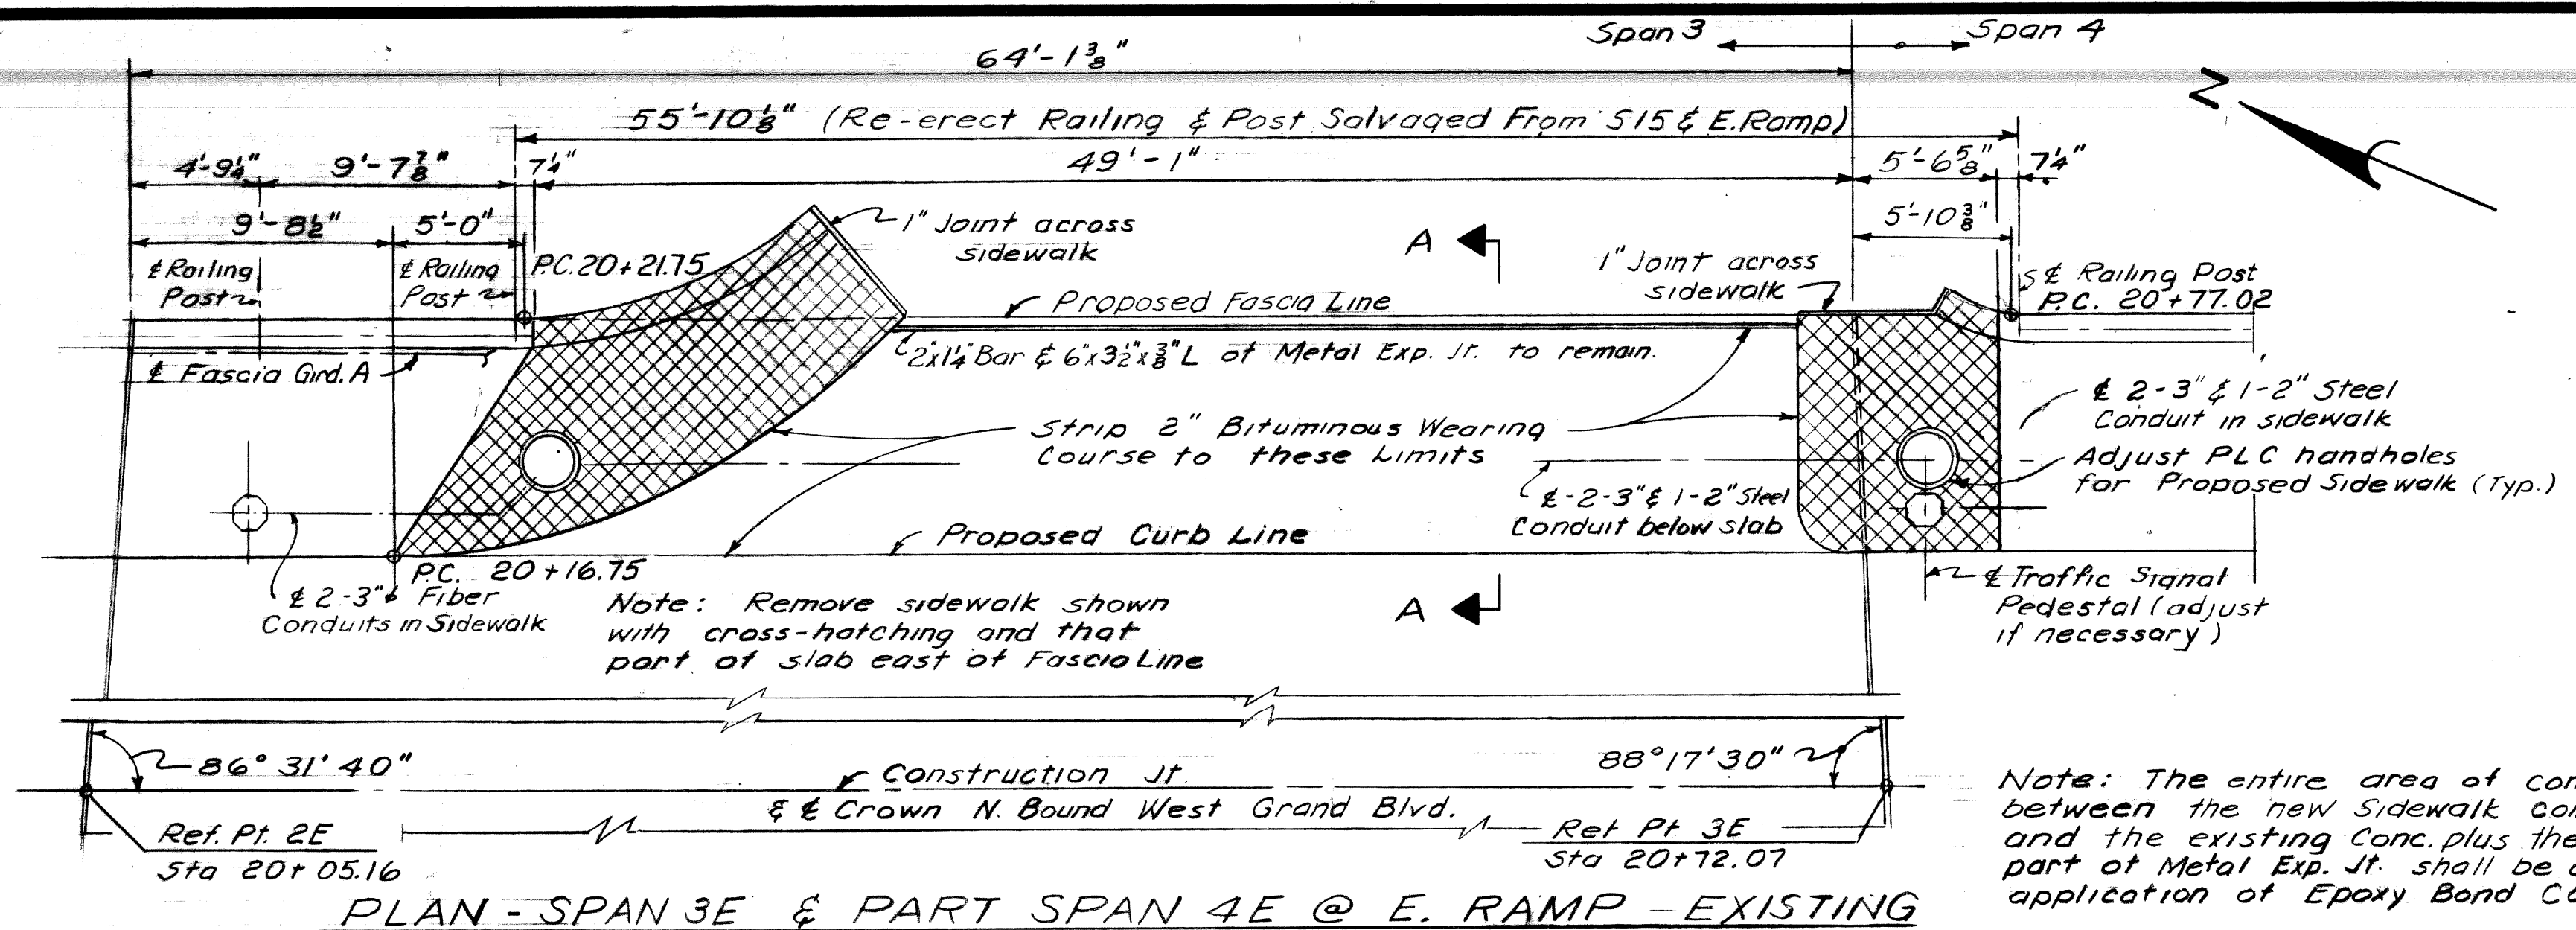 Span 3
Span 4
64'-1 3/8"
55'-10 1/8" (Re-erect Railing & Post Salvaged From S15 & E.Ramp)
4'-9 1/4"
9'-7 7/8"
7 1/4"
49'-1"
5'-6 5/8"
7 1/4"
9'-8 1/2"
5'-0"
5'-10 3/8"
N
℄ Railing
Post
℄ Railing
Post
P.C. 20+21.75
1" Joint across
sidewalk
A
1" Joint across
sidewalk
℄ Railing Post
P.C. 20+77.02
Proposed Fascia Line
℄ Fascia Gird. A
2"x1 1/4" Bar & 6"x3 1/2"x3/8" L of Metal Exp. Jt. to remain.
Strip 2" Bituminous Wearing
Course to these Limits
℄ 2-3" & 1-2" Steel
Conduit in sidewalk
Adjust PLC handholes
for Proposed Sidewalk (Typ.)
℄-2-3" & 1-2" Steel
Conduit below slab
Proposed Curb Line
P.C. 20+16.75
℄ 2-3"φ Fiber
Conduits in Sidewalk
Note: Remove sidewalk shown
with cross-hatching and that
part of slab east of Fascia Line
A
℄ Traffic Signal
Pedestal (adjust
if necessary)
86° 31' 40"
88° 17' 30"
Construction Jt.
& ℄ Crown N. Bound West Grand Blvd.
Ref. Pt. 2E
Sta 20+05.16
Ref Pt. 3E
Sta 20+72.07
Note: The entire area of
between the new Sidewalk
and the existing Conc. plus the
part of Metal Exp. Jt. shall be
application of Epoxy Bond
PLAN - SPAN 3E & PART SPAN 4E @ E. RAMP - EXISTING